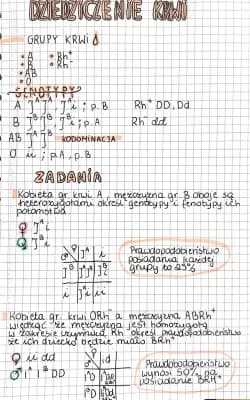 DZIEDZICZENIE KRWI
GRUPY KRWI
• A • Rh+
• B • Rh-
• AB
• O
GENOTYPY
A IᴬIᴬ, Iᴬi ; p. B Rh+ DD, Dd
B IᴮIᴮ, Iᴮi ; p. A Rh- dd
AB IᴬIᴮ KODOMINACJA
O ii ; p. A, p. B
ZADANIA
Kobieta gr. krwi A, mężczyzna gr. B oboje są
heterozygotami określ genotypy i fenotypy ich
potomstwa
♀ Iᴬi
♂ Iᴮi
♀ Iᴬ i
♂
Iᴮ IᴬIᴮ Iᴮi
i Iᴬi ii
Prawdopodobieństwo
posiadania każdej
grupy to 25%
Kobieta gr. krwi ORh- a mężczyzna ABRh+
wiedząc że mężczyzna jest homozygotą
w zakresie czynnika Rh określ prawdopodobieństwo
że ich dziecko będzie miało BRh+
♀ ii dd
♂ IᴬIᴮ DD
♀ id
IᴬD
IᴮD
Prawdopodobieństwo
wynosi 50% na
posiadanie BRH+